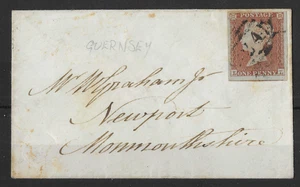 GUERNSEY
POSTAGE
ONE PENNY
Mr W Graham Jr
Newport
Monmouthshire